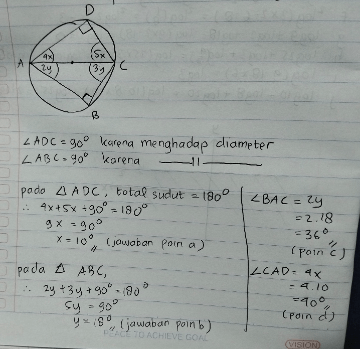 D
4x
5x
A
2y
3y
C
B
∠ADC = 90° karena menghadap diameter
∠ABC = 90° karena —— 〃 ——
pada △ ADC, total sudut = 180°
∴ 4x + 5x + 90° = 180°
9x = 90°
x = 10° (jawaban poin a)
pada △ ABC,
∴ 2y + 3y + 90° = 180°
5y = 90°
y = 18° (jawaban poin b)
∠BAC = 2y
= 2.18
= 36°
(poin c)
∠CAD = 4x
= 4.10
= 40°
(poin d)
TO ACHIEVE GOAL
VISION